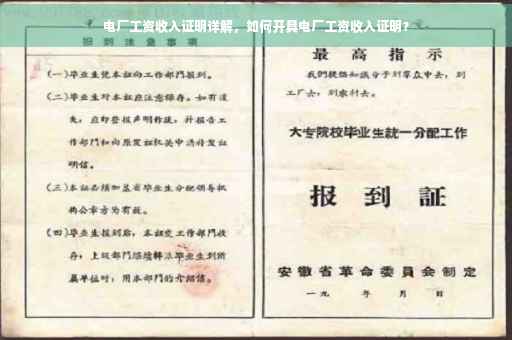 电厂工资收入证明详解，如何开具电厂工资收入证明？
报到注意事项
(一)毕业生凭本证向工作部门报到。
(二)毕业生对本证应注意保存。如有遗
失，应即登报声明作废，并报告工
作部门和向原发证机关申请补发证
明信。
(三)本证必须加盖省毕业生分配领导机
构公章方为有效。
(四)毕业生报到后，本证交工作部门收
存；上级部门
属单位时，用本部门的介绍信。
最高指示
我们提倡知识分子到群众中去，到
工厂去，到农村去。
大专院校毕业生統一分配工作
报到証
安徽省革命委員会制定
一九 年 月 日